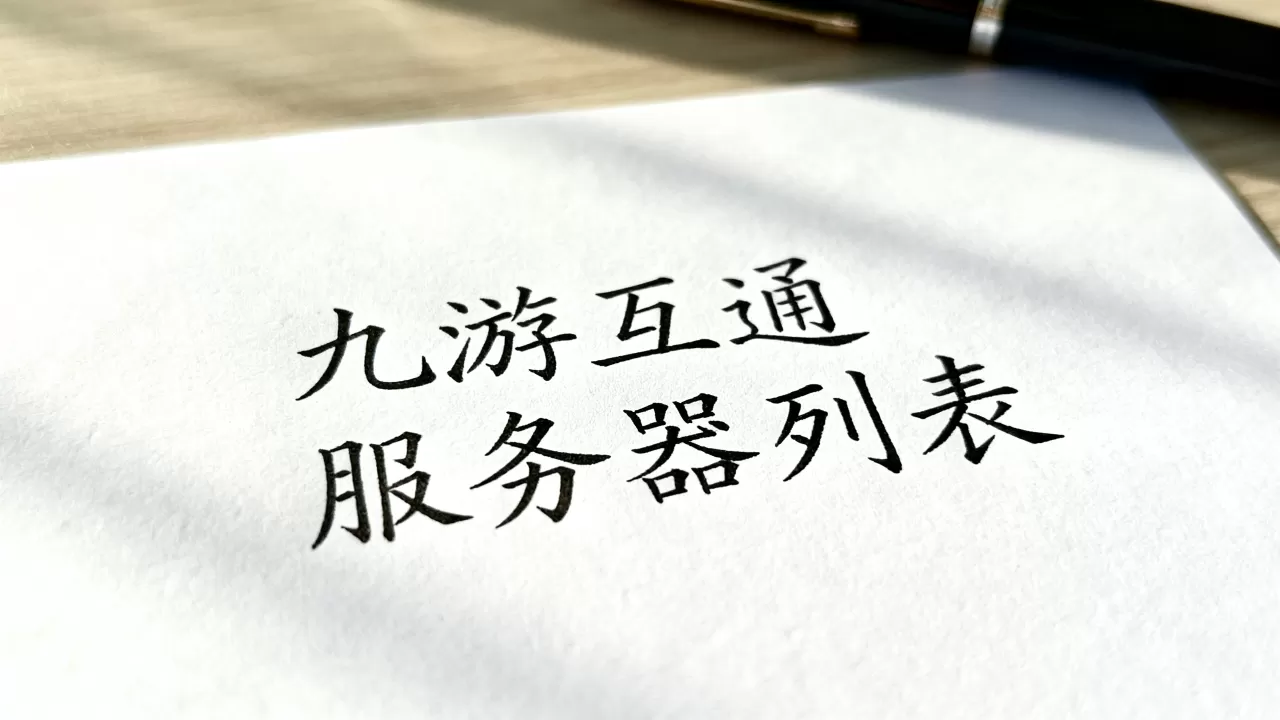 九游互通
服务器列表